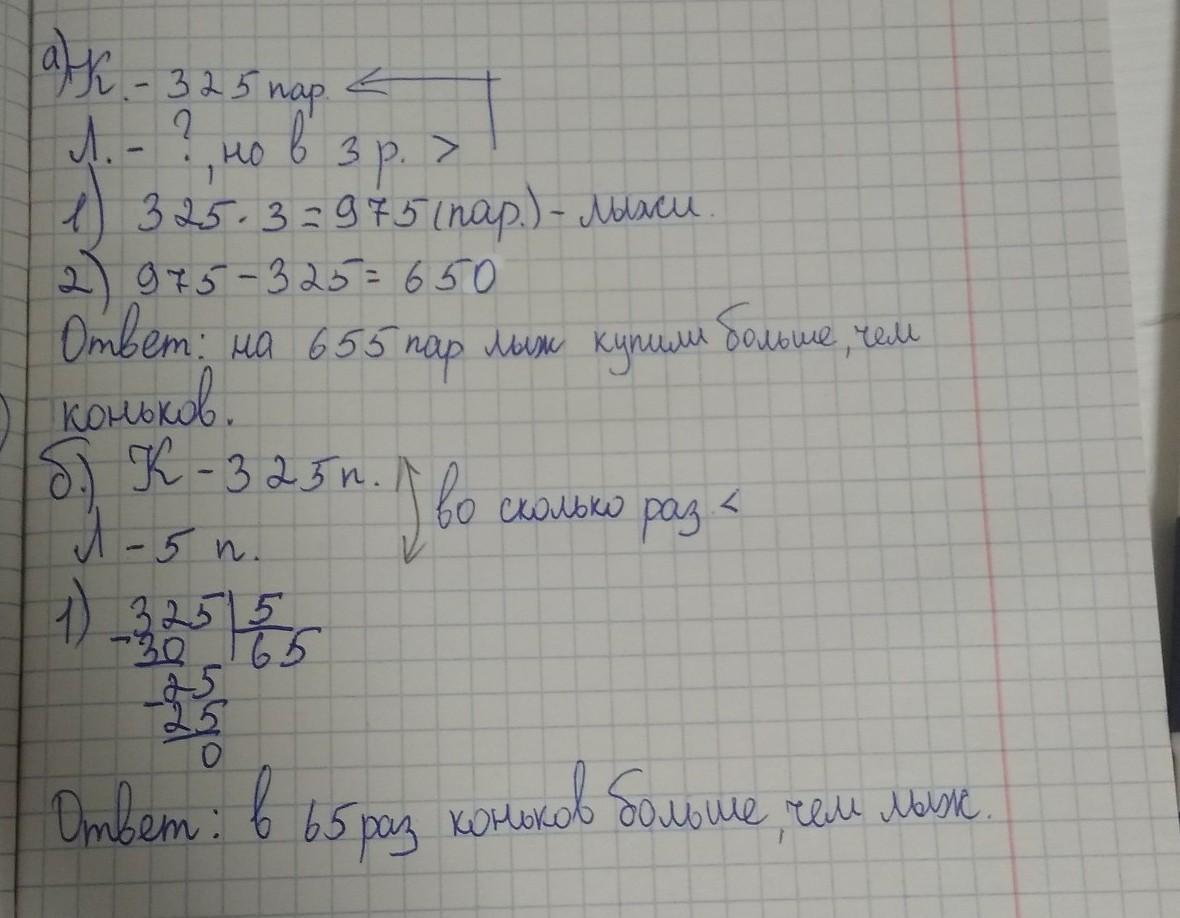 а) К. - 325 пар.
Л. - ?, но в 3 р. >
1) 325 · 3 = 975 (пар.) - лыжи.
2) 975 - 325 = 650
Ответ: на 655 пар лыж купили больше, чем
коньков.
б.) К - 325 п.
во сколько раз <
Л - 5 п.
1) 325 | 5
- 30 | 65
- 25
25
0
Ответ: в 65 раз коньков больше, чем лыж.